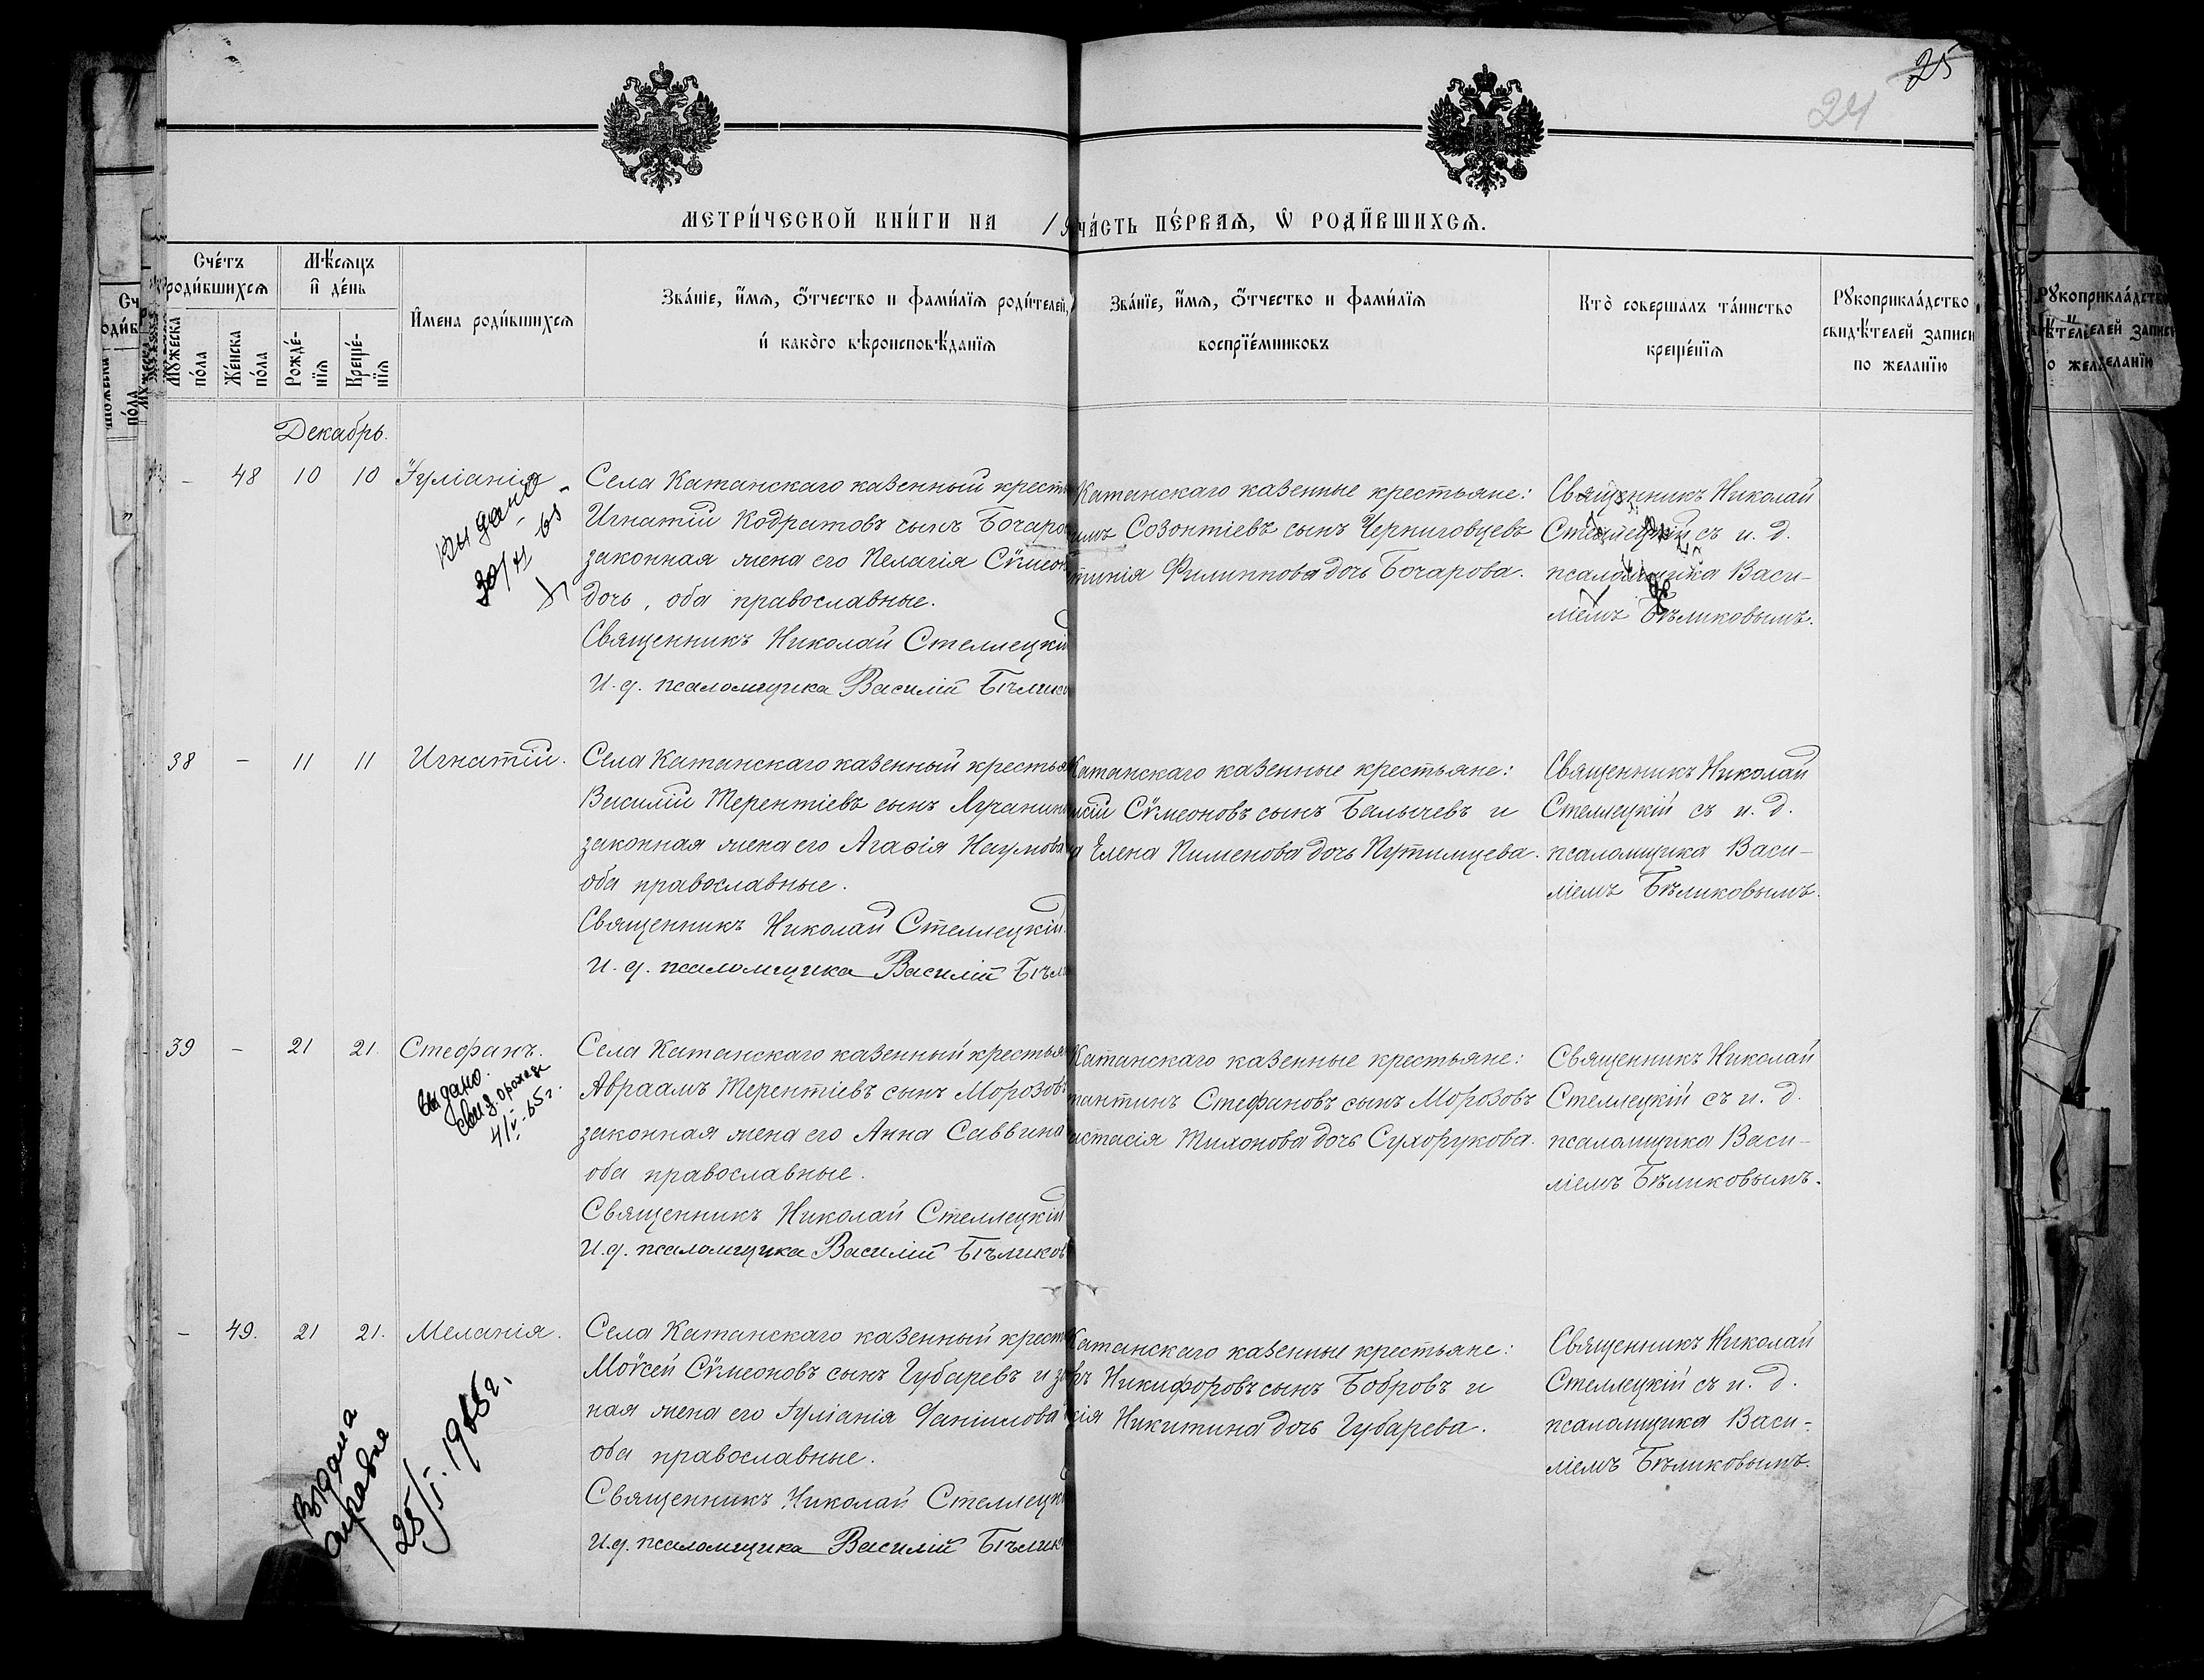 25
24
МЕТРИ́ЧЕСКОЙ КНИ́ГИ НА 19
ЧА́СТЬ ПЕ́РВАѦ, Ѡ РОДИ́ВШИХСѦ.
Сче́тъ родившихсѧ
Мꙋ́жеска по́ла
Же́нска по́ла
Мѣ́сѧцъ и де́нь
Рожде́нїѧ
Креще́нїѧ
И́мена роди́вшихсѧ
Зва́нїе, и́мѧ, о́тчество и фами́лїѧ роди́телей,
и како́го вѣроисповѣ́данїѧ
Зва́нїе, и́мѧ, о́тчество и фами́лїѧ
воспрїе́мниковъ
Кто̀ соверша́лъ та́инство
креще́нїѧ
Рꙋкоприкла́дство
свидѣ́телей записи
по жела́нїю
Декабрь.
- 48 10 10 Іуліанія
выдано
30/XI 65
Села Катанскаго казенный крестья
Игнатій Кодратовъ сынъ Бочаров
законная жена его Пелагія Сѵмеон
дочь, оба православные.
Священникъ Николай Стеллецкій
И. д. псаломщика Василій Бѣлико
Катанскаго казенные крестьяне:
имъ Созонтіевъ сынъ Черниговцевъ
тинія Филиппова дочь Бочарова.
Священникъ Николай
Стеллецкій съ и. д.
псаломщика Васи-
ліемъ Бѣликовымъ.
38 - 11 11 Игнатій.
Села Катанскаго казенный крестья
Василій Терентіевъ сынъ Лучанин
законная жена его Агаѳія Наумова
оба православные.
Священникъ Николай Стеллецкій.
И. д. псаломщика Василій Бѣл
Катанскаго казенные крестьяне:
ксій Сѵмеоновъ сынъ Балычевъ и
а Елена Пименова дочь Путимцева.
Священникъ Николай
Стеллецкій съ и. д.
псаломщика Васи-
ліемъ Бѣликовымъ.
39 - 21 21. Стефанъ.
выдано.
свид. о рожде
4/V-65г.
Села Катанскаго казенный крестья
Авраамъ Терентіевъ сынъ Морозовъ
законная жена его Анна Саввина
оба православные.
Священникъ Николай Стеллецкій
И. д. псаломщика Василій Бѣликов
Катанскаго казенные крестьяне:
тантинъ Стефановъ сынъ Морозовъ
астасія Тихонова дочь Сухорукова.
Священникъ Николай
Стеллецкій съ и. д.
псаломщика Васи-
ліемъ Бѣликовымъ.
- 49. 21 21. Меланія.
выдана
справка
25/I. 1965г.
Села Катанскаго казенный крест
Моѵсей Сѵмеоновъ сынъ Губаревъ и за
ная жена его Іуліанія Даніилова
оба православные.
Священникъ Николай Стеллецкі
И. д. псаломщика Василій Бѣлик
Катанскаго казенные крестьяне:
ъ Никифоровъ сынъ Бобровъ и
кія Никитина дочь Губарева.
Священникъ Николай
Стеллецкій съ и. д.
псаломщика Васи-
ліемъ Бѣликовымъ.